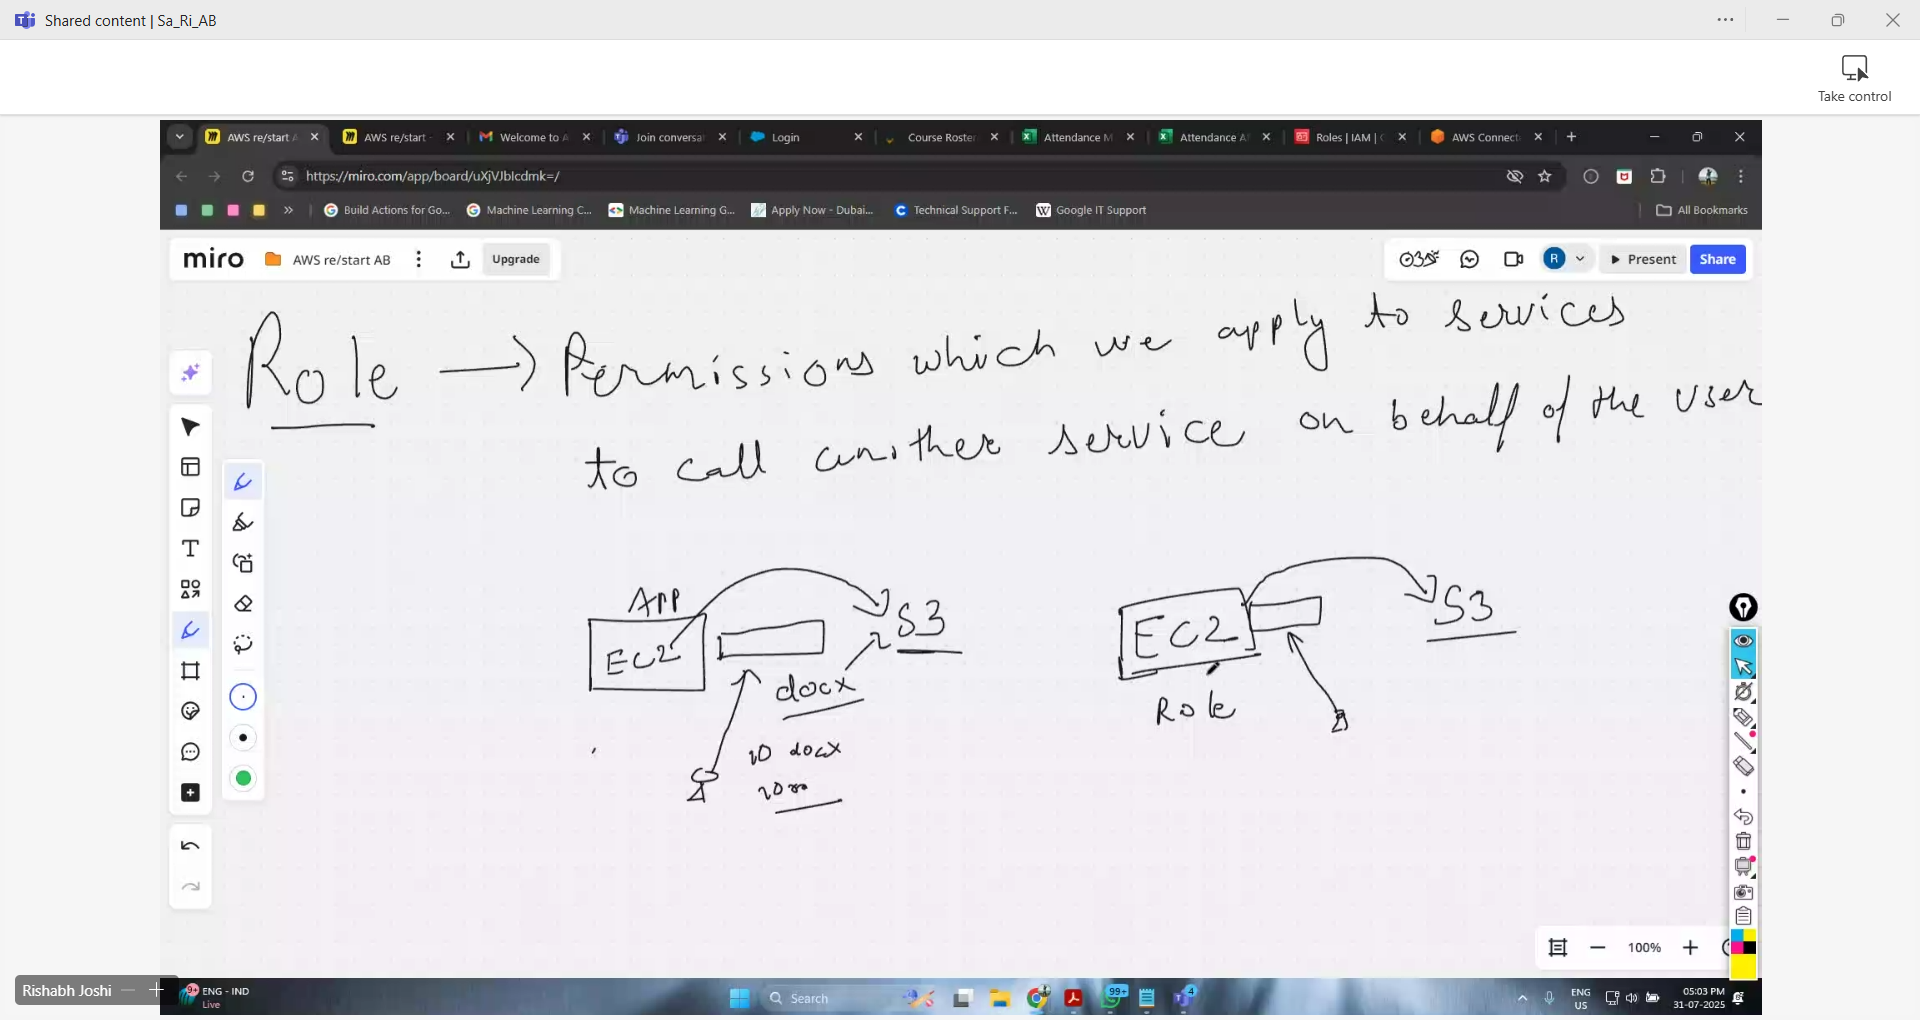 Shared content | Sa_Ri_AB
Take control
AWS re/start A
AWS re/start -
Welcome to A
Join conversa
Login
Course Roster
Attendance M
Attendance A
Roles | IAM |
AWS Connect
https://miro.com/app/board/uXjVJbIcdmk=/
Build Actions for Go...
Machine Learning C...
Machine Learning G...
Apply Now - Dubai...
Technical Support F...
Google IT Support
All Bookmarks
miro
AWS re/start AB
Upgrade
R
Present
Share
Role → Permissions which we apply to services
to call another service on behalf of the user
APP
EC2
S3
docx
10 docx
EC2
S3
Role
100%
Rishabh Joshi
9+
ENG - IND
Live
Search
99+
4
ENG
US
05:03 PM
31-07-2025